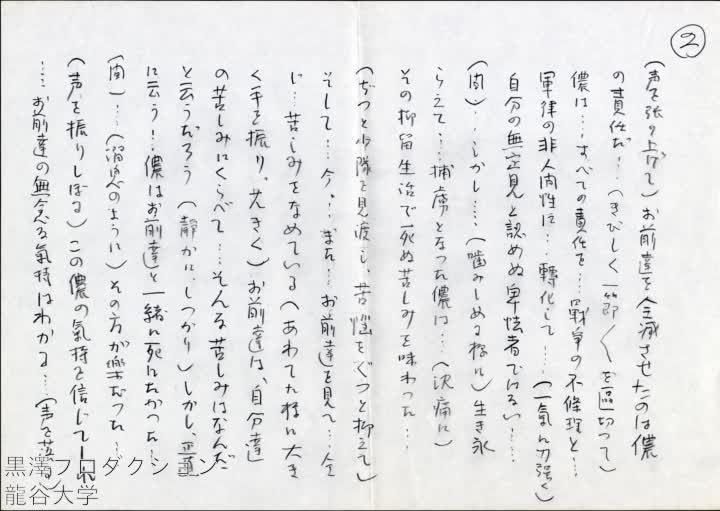 ②
(声を張り上げて) お前達を全滅させたのは儂
の責任だ…(きびしく一節〱を區切つて)
儂は…すべての責任を…戰争の不條理と…
軍律の非人間性に…轉化して…(一氣に力强く)
自分の無定見と認めぬ卑怯者ではない……
(間)…しかし…(噛みしめる様に)生き永
らえて…捕虜となつた儂は…(沈痛に)
その抑留生活で死ぬ苦しみを味わつた…
(ぢつと小隊を見渡し、苦惱をぐつと抑えて)
そして…今、…また…お前達を見て…全
じ…苦しみをなめている(あわてた様に大き
く手を振り、大きく)お前達は、自分達
の苦しみにくらべて…そんな苦しみはなんだ
と云うだろう(静かに、しつかり)しかし、正直
に云う!…儂はお前達と一緒に死にたかつた…
(間)…(溜息のように)その方が樂だつた…
(声を振りしぼる)この儂の氣持を信じてくれ
…お前達の無念な氣持はわかる…(声を落る)
黒澤プロダクション
龍谷大学